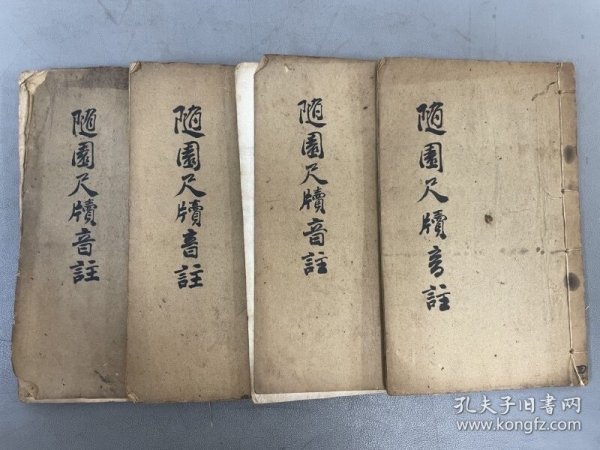 随園尺牘音註
随園尺牘音註
随園尺牘音註
随園尺牘音註
孔夫子旧书网
www.kongfz.com